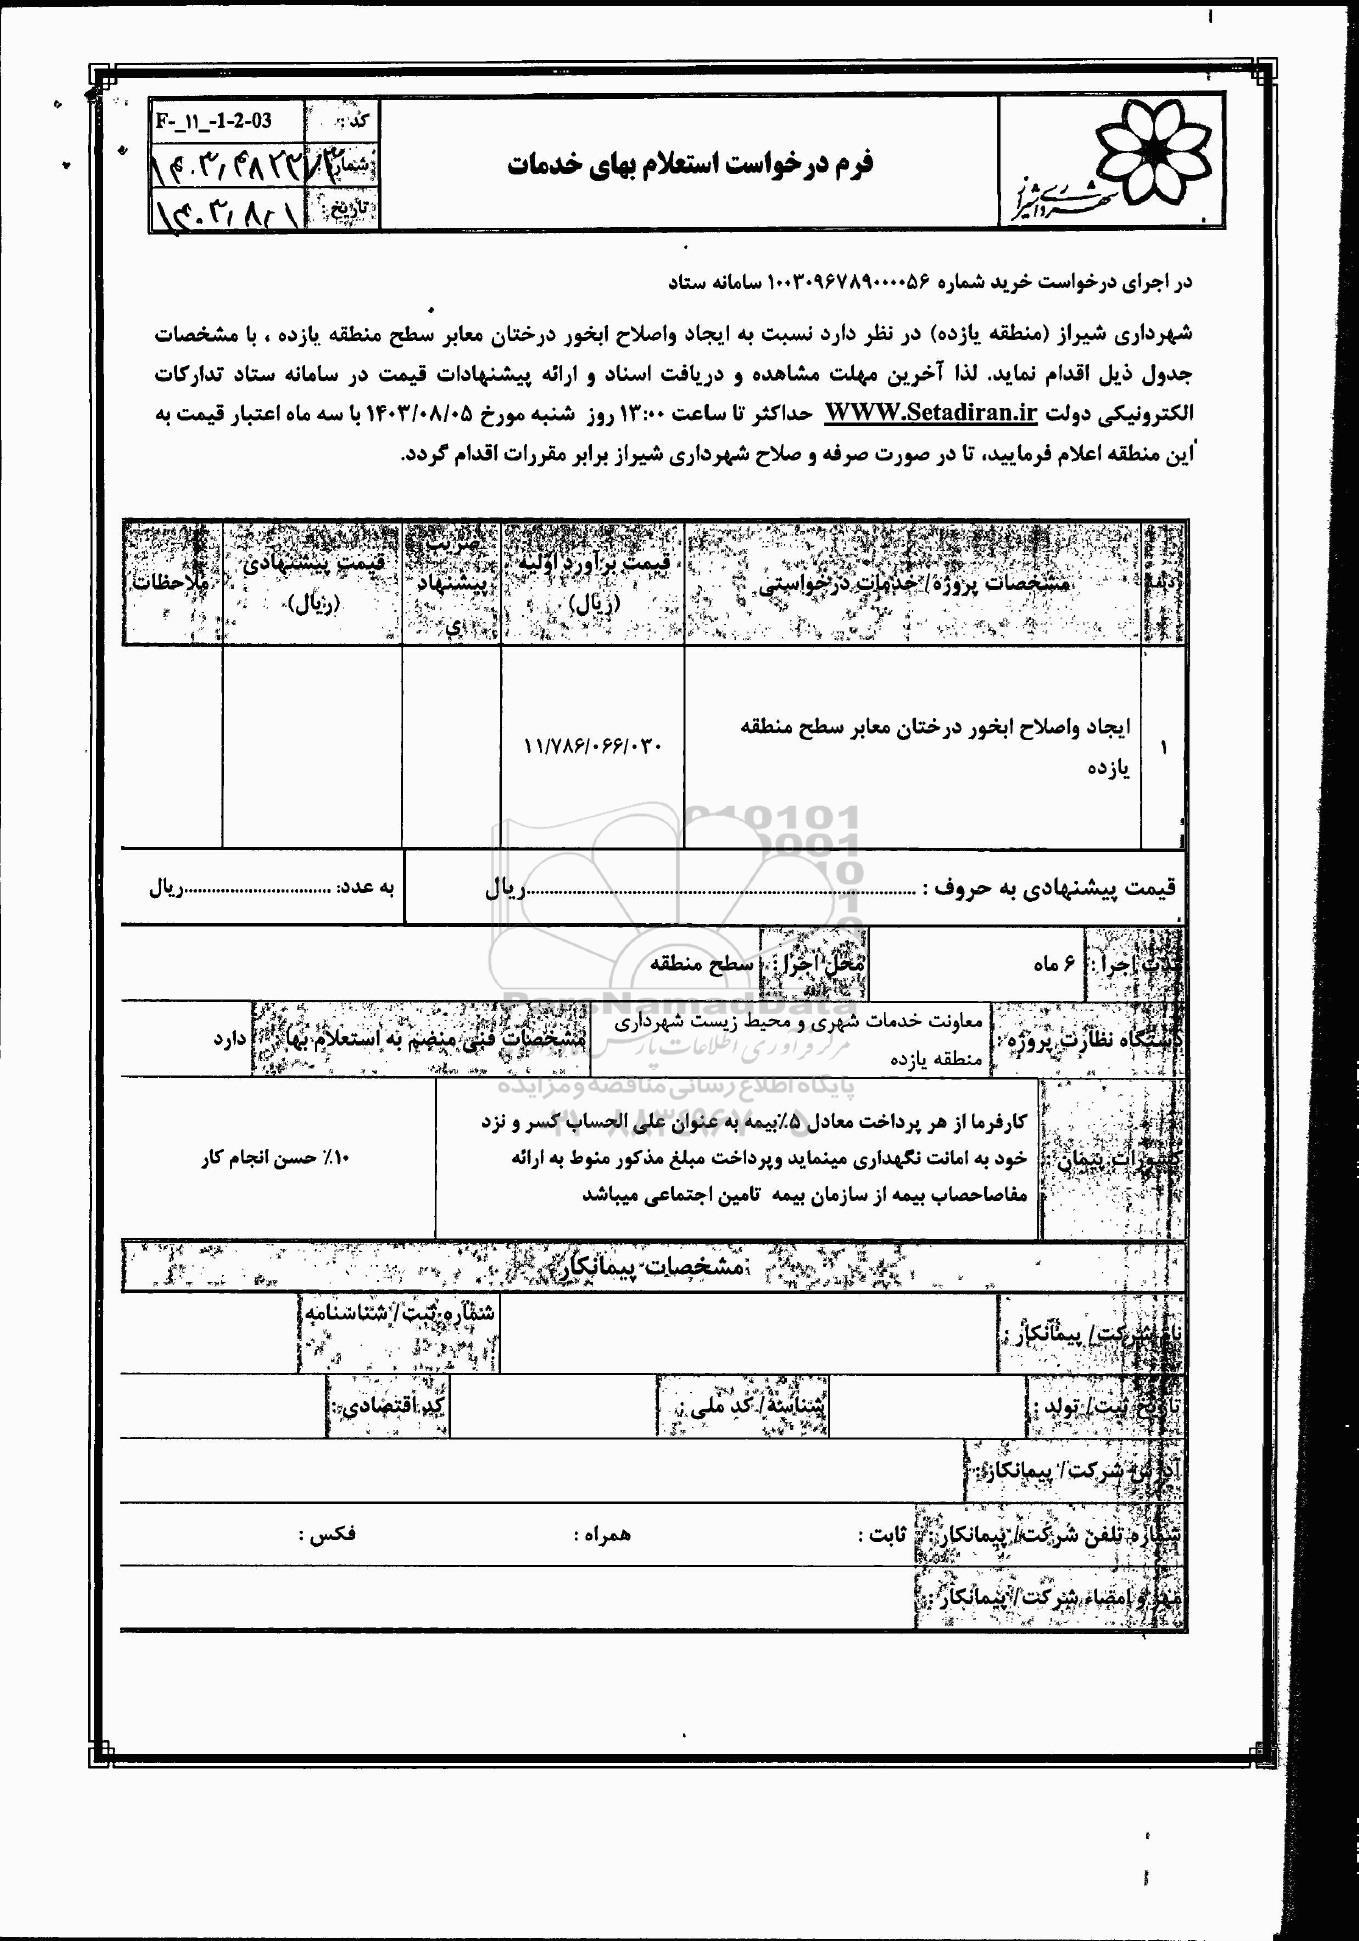 شهرداری شیراز
فرم درخواست استعلام بهای خدمات
کد : F-_۱۱_-1-2-03
شماره :
تاریخ : ۱۴۰۳/۸/۱
در اجرای درخواست خرید شماره ۱۰۰۳۰۹۶۷۸۹۰۰۰۰۵۶ سامانه ستاد
شهرداری شیراز (منطقه یازده) در نظر دارد نسبت به ایجاد واصلاح ابخور درختان معابر سطح منطقه یازده ، با مشخصات
جدول ذیل اقدام نماید. لذا آخرین مهلت مشاهده و دریافت اسناد و ارائه پیشنهادات قیمت در سامانه ستاد تدارکات
الکترونیکی دولت WWW.Setadiran.ir حداکثر تا ساعت ۱۳:۰۰ روز شنبه مورخ ۱۴۰۳/۰۸/۰۵ با سه ماه اعتبار قیمت به
این منطقه اعلام فرمایید، تا در صورت صرفه و صلاح شهرداری شیراز برابر مقررات اقدام گردد.
ردیف مشخصات پروژه/ خدمات درخواستی قیمت برآورد اولیه (ریال) ضریب پیشنهادی قیمت پیشنهادی (ریال) ملاحظات
۱ ایجاد واصلاح ابخور درختان معابر سطح منطقه ۱۱/۷۸۶/۰۶۶/۰۳۰
یازده
قیمت پیشنهادی به حروف : ....................ریال به عدد: ....................ریال
مدت اجرا : ۶ ماه محل اجرا : سطح منطقه
دستگاه نظارت پروژه : معاونت خدمات شهری و محیط زیست شهرداری مشخصات فنی منضم به استعلام بها : دارد
منطقه یازده
کسورات پیمان : کارفرما از هر پرداخت معادل ۵٪بیمه به عنوان علی الحساب کسر و نزد
خود به امانت نگهداری مینماید وپرداخت مبلغ مذکور منوط به ارائه ۱۰٪ حسن انجام کار
مفاصاحصاب بیمه از سازمان بیمه تامین اجتماعی میباشد
مشخصات پیمانکار
نام شرکت/ پیمانکار : شماره ثبت/ شناسنامه
تاریخ ثبت/ تولد : شناسه/ کد ملی : کد اقتصادی :
آدرس شرکت/ پیمانکار :
شماره تلفن شرکت/ پیمانکار : ثابت : همراه : فکس :
مهر و امضاء شرکت/ پیمانکار :
ParsNamadData
پایگاه اطلاع رسانی مناقصه و مزایده